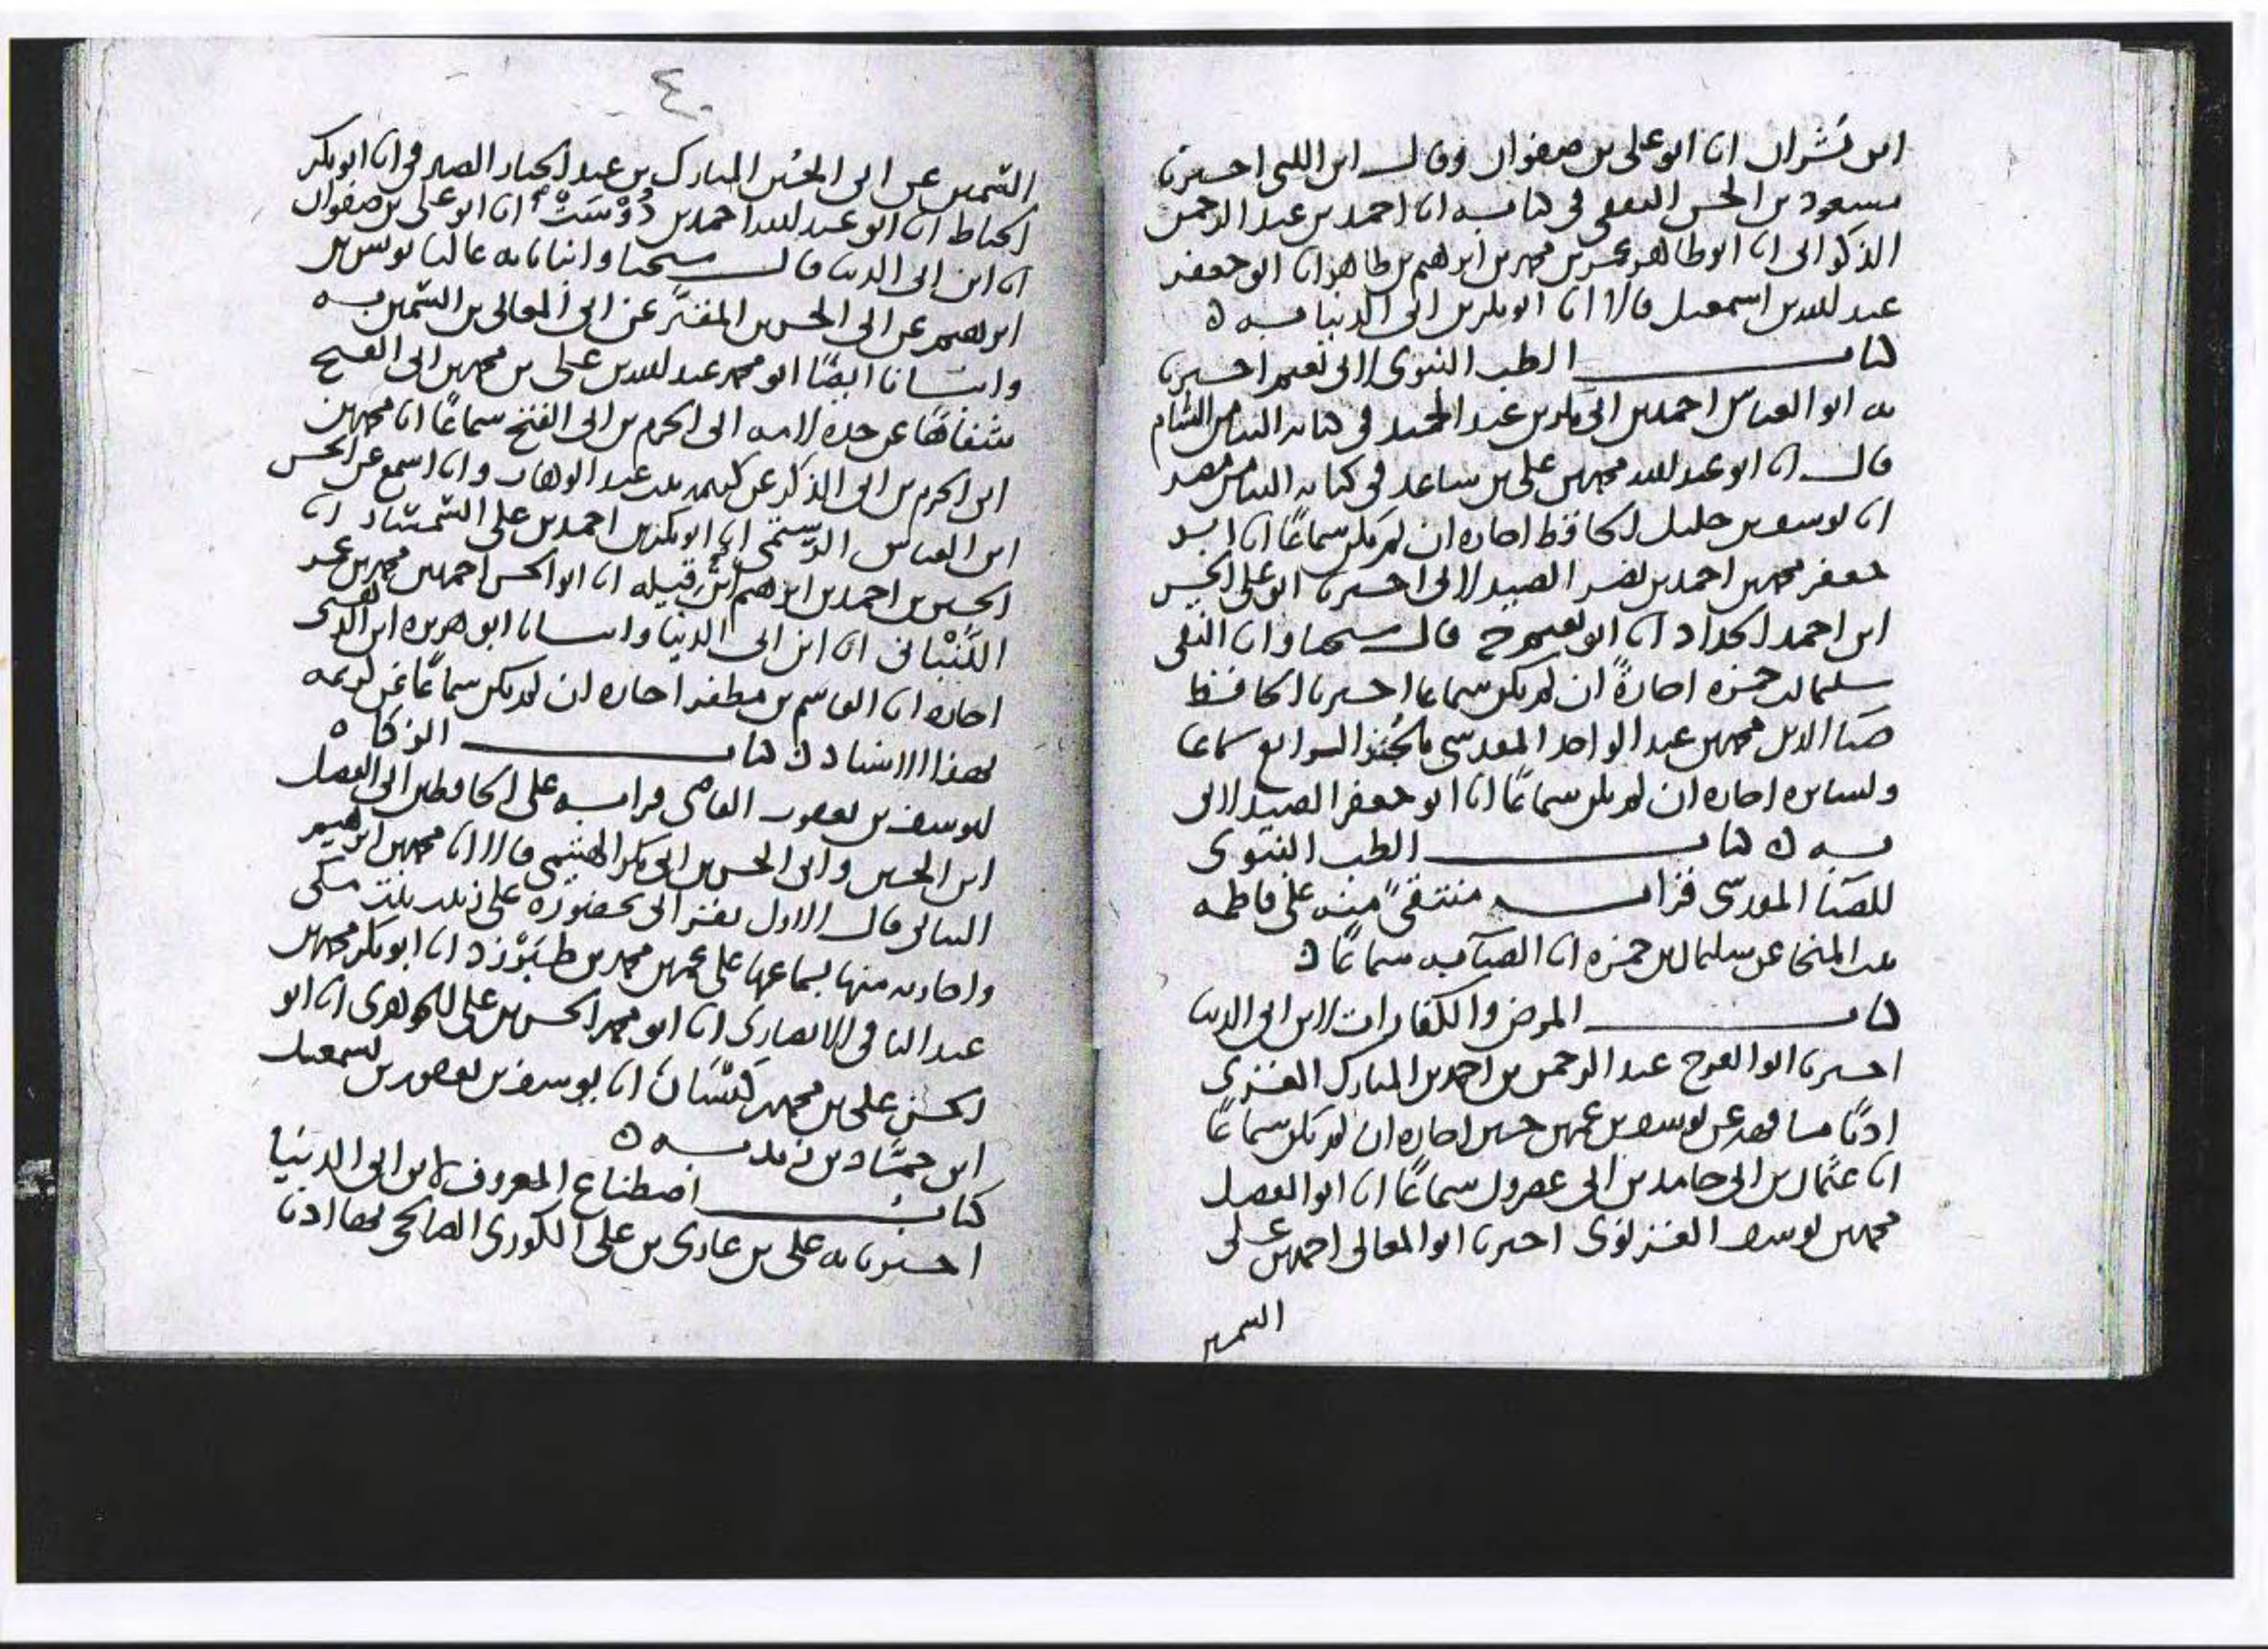 ابن بشران انا ابو على بن صفوان وقال ابن اللتى اخبرنا
مسعود بن الحسن الثقفى فى كتابه انا احمد بن عبد الرحمن
الذكوانى انا ابو طاهر عمر بن محمد بن ابرهيم بن طاهر انا ابو جعفر
عبد الله بن اسمعيل قالا انا ابو بكر بن ابى الدنيا به ه
كتاب الطب النبوى لابى نعيم اخبرنا
به ابو العباس احمد بن ابى بكر بن عبد الحميد فى كتابه الينا من الشام
قال انا ابو عبد الله محمد بن على بن ساعد فى كتابه الينا من مصر
انا يوسف بن خليل الحافظ اجازه ان لم يكن سماعًا انا ابو
جعفر محمد بن احمد بن نصر الصيدلانى اخبرنا ابو على الحسن
ابن احمد الحداد انا ابو نعيم ح قال شيخنا وانا التقى
سليمان بن حمزه اجازةً ان لم يكن سماعا اخبرنا الحافظ
ضيا الدين محمد بن عبد الواحد المقدسى بالجُزء الرابع سماعا
ولسايره اجازه ان لم يكن سماعًا انا ابو جعفر الصيدلانى
به ه كتاب الطب النبوى
للضيا المقدسى قرات منتقىً منه على فاطمه
بنت المنجا عن سليمان بن حمزه انا الضيا به سماعًا ه
كتاب المرض والكفارات لابن ابى الدنيا
اخبرنا ابو الفرج عبد الرحمن بن احمد بن المبارك الغزى
اذنًا مشافهه عن يوسف بن عمر بن حسين اجازه ان لم يكن سماعًا
انا عثمان بن ابى حامد بن ابى عصرون سماعًا انا ابو الفضل
محمد بن يوسف الغزنوى اخبرنا ابو المعالى احمد بن على
السمين
٤٠
السمين عن ابى الحُسين المبارك بن عبد الجبار الصيرفى انا ابو بكر
الخياط انا ابو عبد الله احمد بن دُوْسَتْ انا ابو على بن صفوان
انا ابن ابى الدنيا قال شيخنا وانبانا به عاليا يونس بن
ابرهيم عن ابى الحسن بن المقيَّر عن ابى المعالى بن السمين به
وانبانا ايضًا ابو محمد عبد الله بن على بن محمد بن ابى الفتح
شفاهًا عن جده لامه ابى الحرم بن ابى الفتح سماعًا انا محمد بن
ابى الحرم بن ابى الذكر عن كريمه بنت عبد الوهاب وانا اسمع عن الحسن
ابن العباس الرستمى انا ابو بكر بن احمد بن على السمسار انا
الحسن بن احمد بن ابرهيم انا ابو الحسن احمد بن محمد بن عمر
اللُّنْبانى انا ابن ابى الدنيا وانبانا ابو هريره ابن الذهبى
اجازه انا القاسم بن مظفر اجازه ان لم يكن سماعًا عن كريمه
بهذا الاسناد ه كتاب الزكاه
ليوسف بن يعقوب القاضى قراته على الحافظين ابى الفضل
ابن الحسين وابى الحسن بن ابى بكر الهيثمى قالا انا محمد بن ابرهيم
البيانى قال الاول بقراتى بحضوره على زينب بنت مكى
واجازته منها بسماعها على عمر بن محمد بن طَبَرْزَد انا ابو بكر محمد بن
عبد الباقى الانصارى انا ابو محمد الحسن بن على الجوهرى انا ابو
الحسن على بن محمد بن كَيْسَانَ انا يوسف بن يعقوب بن اسمعيل
ابن حمَّاد بن زيد به ه
كتابُ اصطناع المعروف لابن ابى الدنيا
اخبرنا به على بن غازى بن على الكورى الصالحى بها اذنا